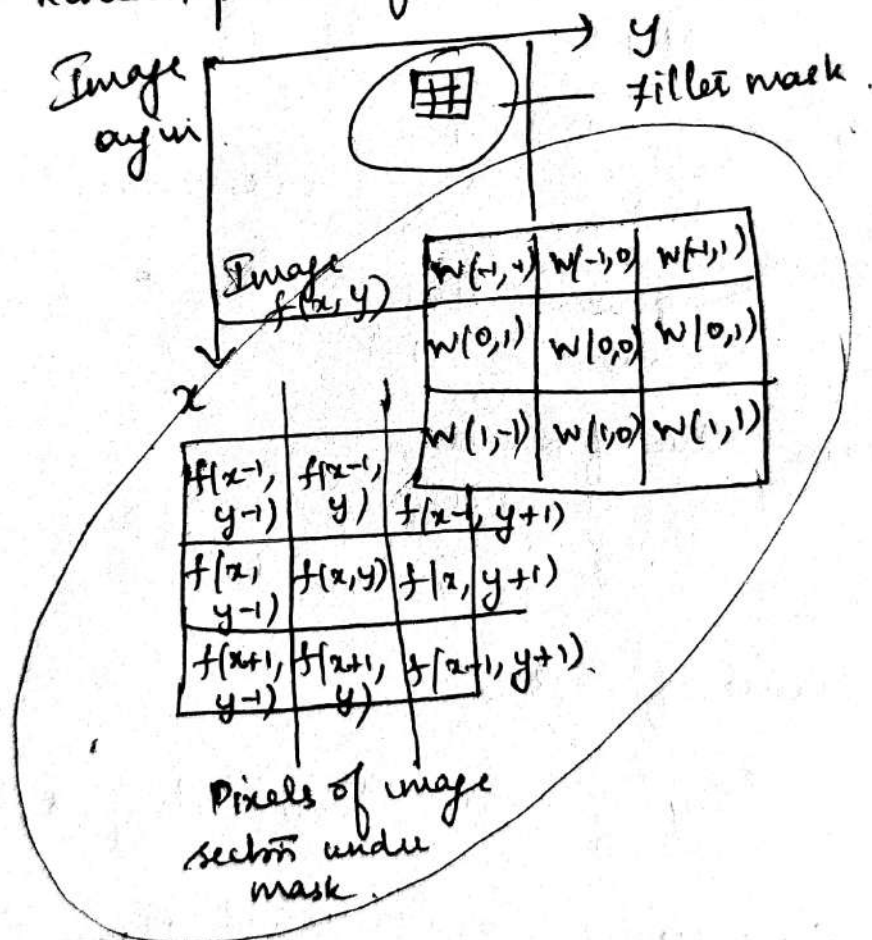 y
Image
origin
filter mask.
Image
f(x,y)
x
W(-1,-1) W(-1,0) W(-1,1)
W(0,1) W(0,0) W(0,1)
W(1,-1) W(1,0) W(1,1)
f(x-1, y-1) f(x-1, y) f(x-1, y+1)
f(x, y-1) f(x,y) f(x, y+1)
f(x+1, y-1) f(x+1, y) f(x-1, y+1).
Pixels of image
section under
mask.